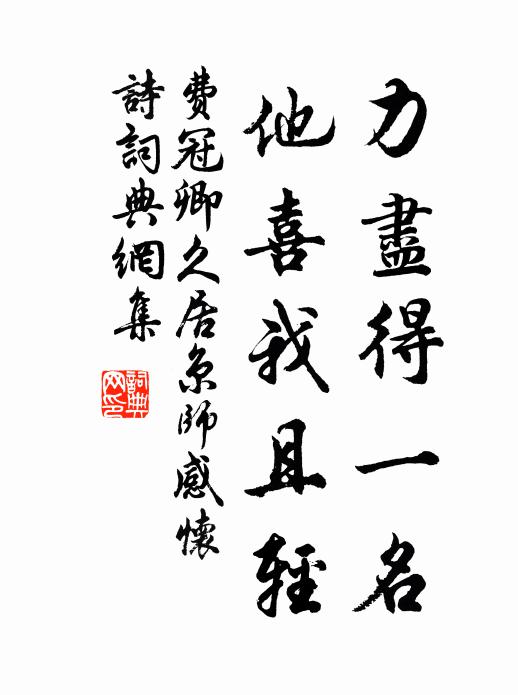 力盡得一名
他喜我且輕
費冠卿久居京師感懷
詩詞典網集
詞典网印